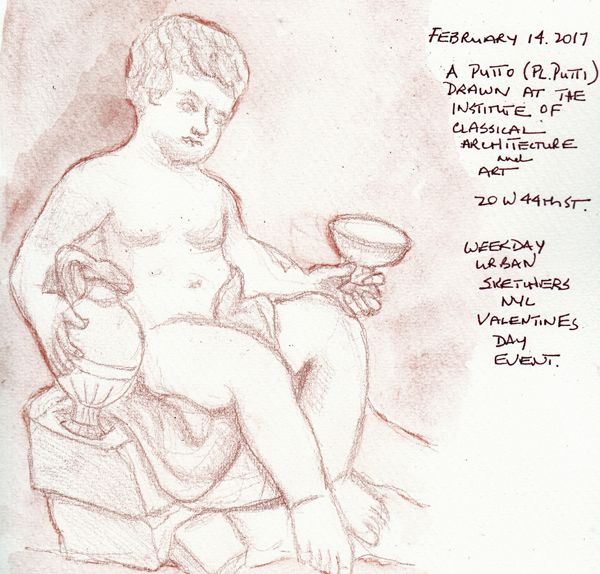 FEBRUARY 14. 2017
A PUTTO (PL. PUTTI)
DRAWN AT THE
INSTITUTE OF
CLASSICAL
ARCHITECTURE
and
ART
20 W 44TH ST.
WEEKDAY
URBAN
SKETCHERS
NYC
VALENTINES
DAY
EVENT.